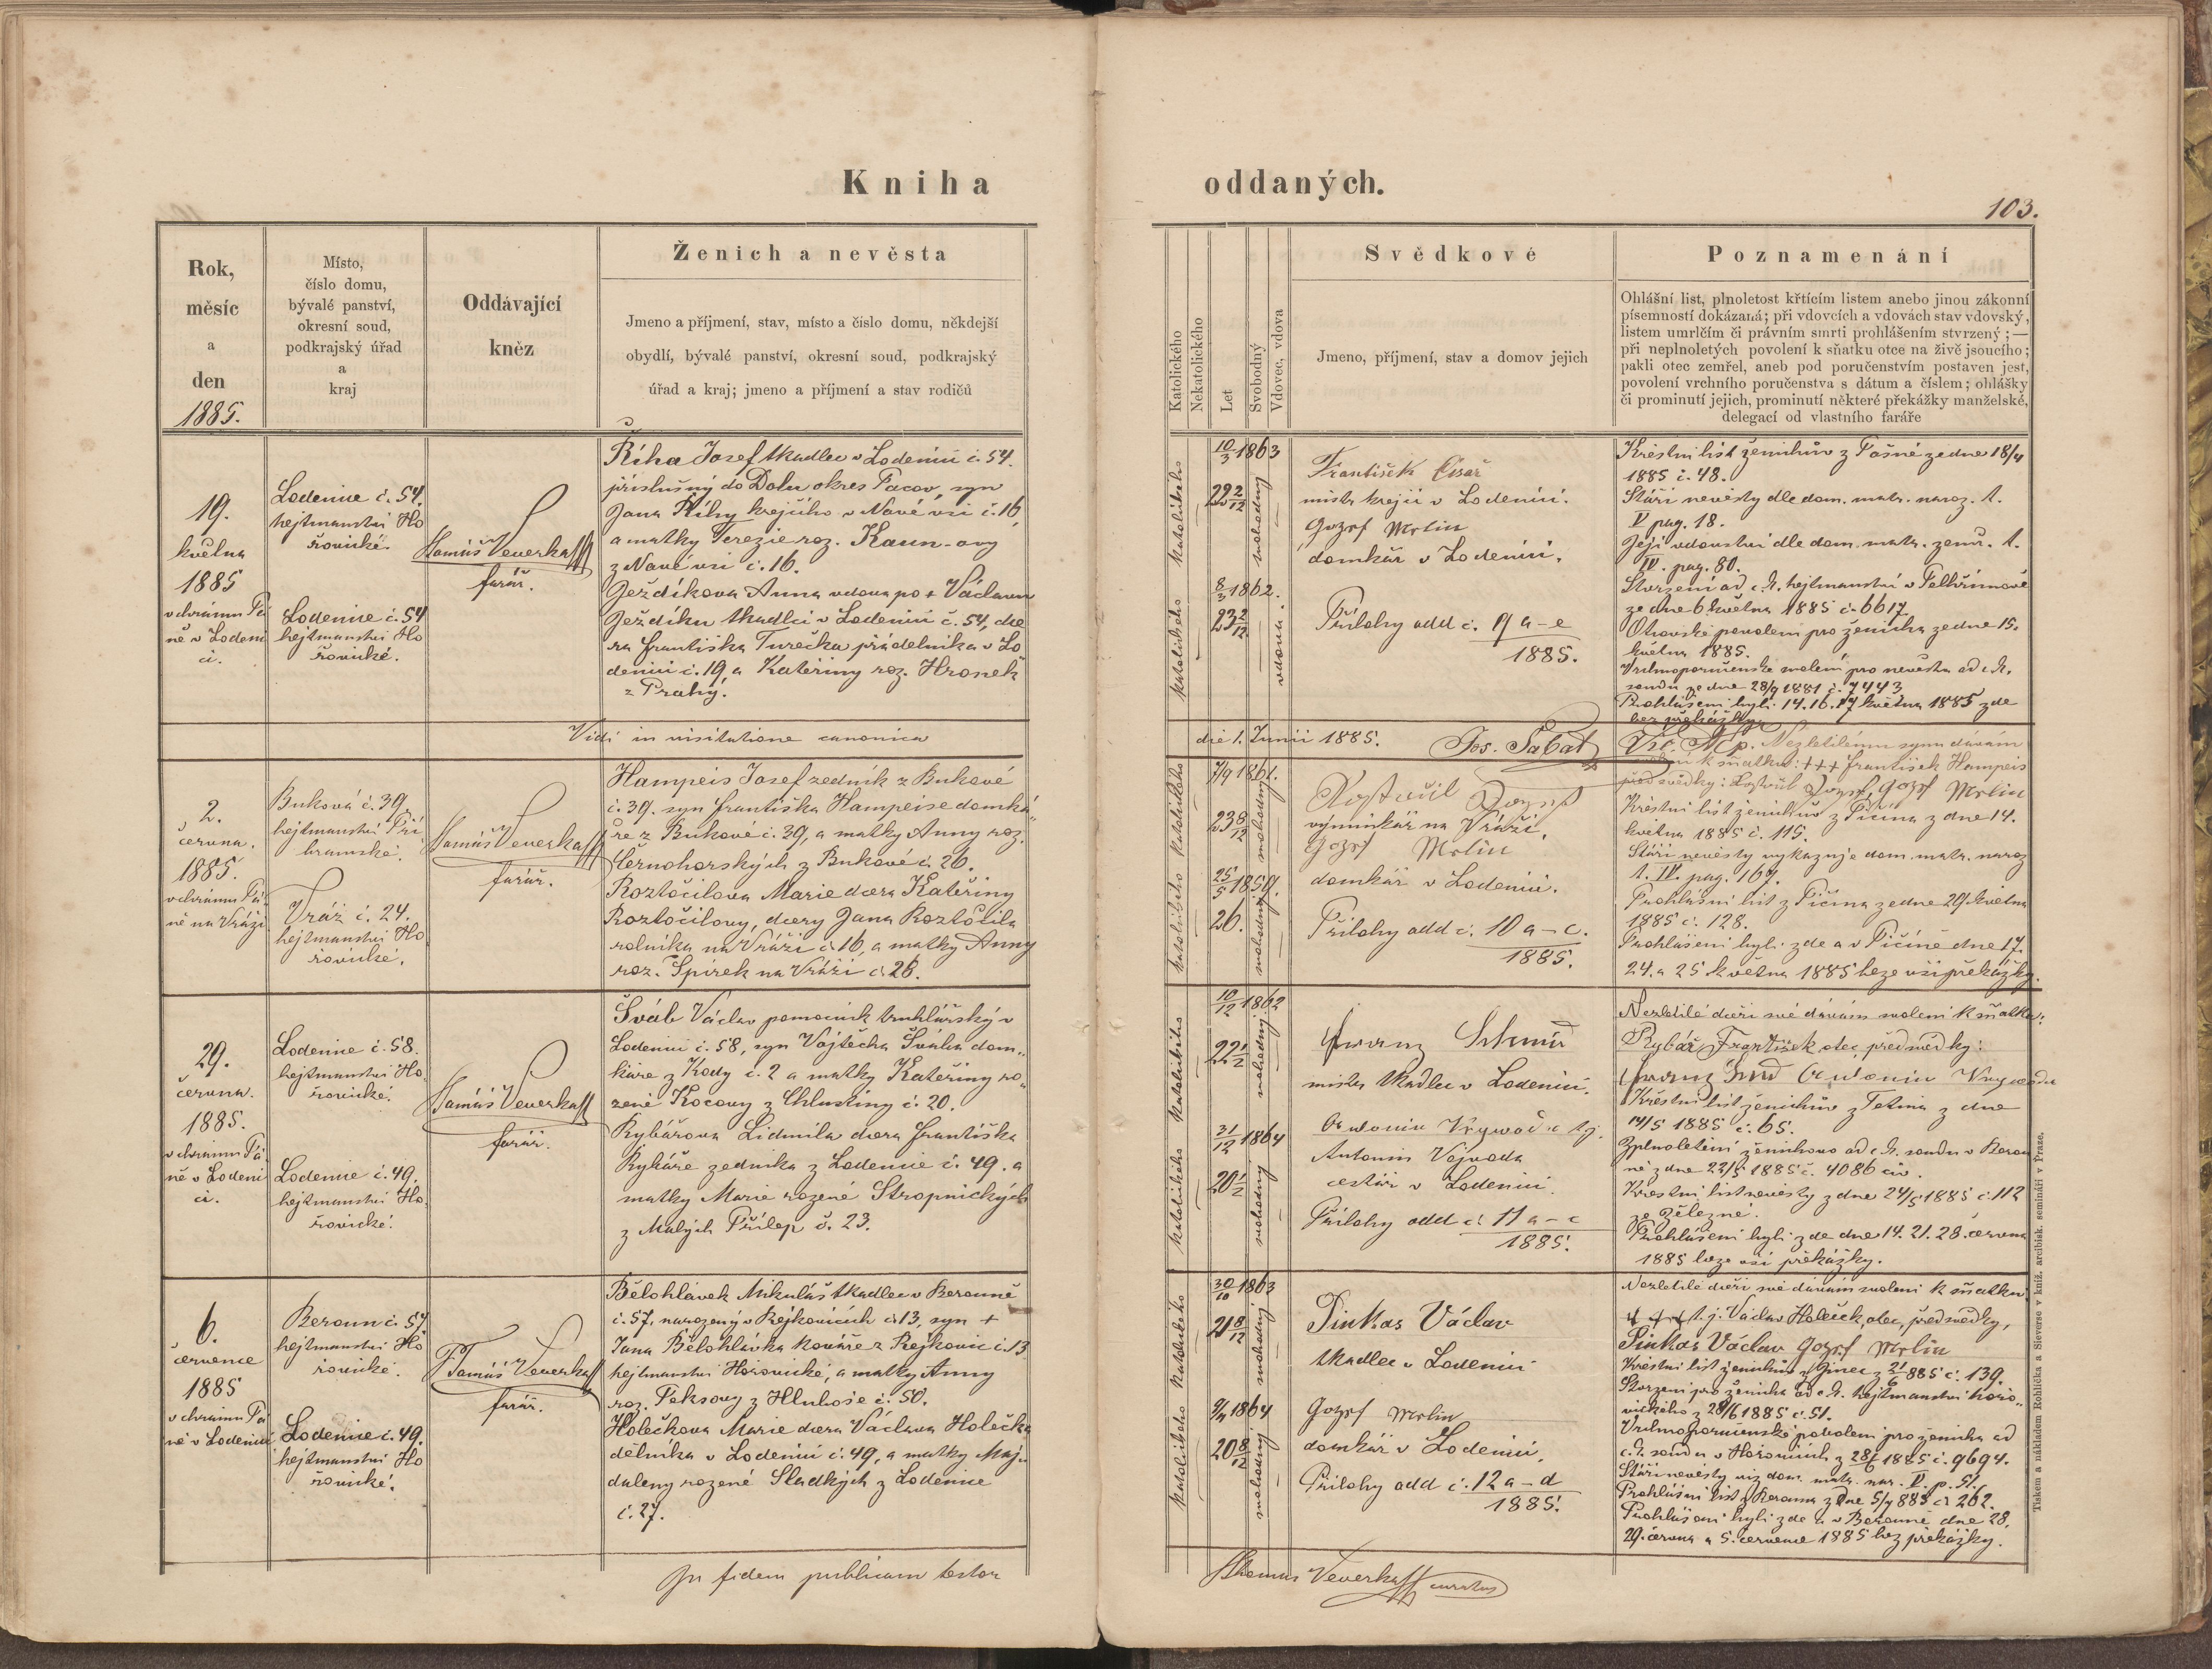 Kniha oddaných.
103.
Rok,
měsíc
a
den
1885.
Místo,
číslo domu,
bývalé panství,
okresní soud,
podkrajský úřad
a
kraj
Oddávající
kněz
Ženich a nevěsta
Jmeno a příjmení, stav, místo a čislo domu, někdejší
obydlí, bývalé panství, okresní soud, podkrajský
úřad a kraj; jmeno a příjmení a stav rodičů
Katolického
Nekatolického
Let
Svobodný
Vdovec, vdova
Svědkové
Jmeno, příjmení, stav a domov jejich
Poznamenání
Ohlášní list, plnoletost křtícím listem anebo jinou zákonní
písemností dokázaná; při vdovcích a vdovách stav vdovský,
listem umrlčím či právním smrti prohlášením stvrzený; —
při neplnoletých povolení k sňatku otce na živě jsoucího;
pakli otec zemřel, aneb pod poručenstvím postaven jest,
povolení vrchního poručenstva s dátum a číslem; ohlášky
či prominutí jejich, prominutí některé překážky manželské,
delegací od vlastního faráře
19.
května
1885
v chrámu Pá
ně v Lodeni
ci.
Lodenice č. 54.
hejtmanství Ho
řovické.
Lodenice č. 54
hejtmanství Ho
řovické.
Tamáš Veverka
farář.
Říha Josef tkadlec v Lodenici č. 54.
příslušný do Dolu okres Pacov, syn
Jana Říhy krejčího v Nové vsi č. 16,
a matky Terezie roz. Kaun-ovy
z Nové vsi č. 16.
Ježdíkova Anna vdova po + Václavu
Ježdíku tkadlci v Lodenici č. 54, dce
ra Františka Turečka přádelníka v Lo
denici č. 19, a Kateřiny roz. Hronek
z Prahy.
katolického
10/3 1863
22 2/12
svobodný
katolického
8/3 1862.
23 2/12
vdova.
František Císař
mistr krejčí v Lodenici.
Jozef Merlin
domkář v Lodenici.
Přílohy add č. 9 a–e
1885.
Křestní list ženichův z Pošné ze dne 18/4
1885 č. 48.
Stáří nevěsty dle dom. matr. naroz. t.
V pag. 18.
Její vdovství dle dom. matr. zemř. t.
IV. pag. 80.
Stvrzení od c. k. hejtmanství v Pelhřimově
ze dne 6 května 1885 č. 6617
Otcovské povolení pro ženicha ze dne 15.
května 1885.
Vrchnoporučenské svolení pro nevěstu od c. k.
soudu ze dne 28/9 1881 č. 7443
Prohlášeni byli 14. 16. 17 května 1885 zde
bez překážky
Vidi in visitatione canonica
die 1. Junii 1885. Jos. Sabat
2.
června.
1885.
v chrámu Pá
ně na Vráži
Buková č. 39,
hejtmanství Pří
bramské.
Vráž č. 24.
hejtmanství Ho
řovické.
Tamáš Veverka
farář.
Hampeis Josef zedník z Bukové
č. 39. syn Františka Hampeise domká
ře z Bukové č. 39, a matky Anny roz.
Černohorských z Bukové č. 26.
Roztočilova Marie dcera Kateřiny
Roztočilovy, dcery Jana Roztočila
rolníka na Vráži č. 16, a matky Anny
roz. Spirek na Vráži č. 28.
katolického
7/9 1861.
23 8/12
svobodný
katolického
25/5 1859.
26.
svobodný
výminkář na Vráži.
Jozef Merlin
domkář v Lodenici.
Přílohy add č. 10 a–c.
1885.
Nezletilému synu dávám
k sňatku: +++ František Hampeis
před svědky: Jozef Merlin
Křestní list ženichův z Pičína z dne 14.
května 1885 č. 115.
Stáří nevěsty vykazuje dom. matr. naroz
t. IV. pag. 169.
Prohlášní list z Pičína ze dne 29. května
1885 č. 128.
Prohlášeni byli zde a v Pičíně dne 17.
24. a 25 května 1885 beze vší překážky.
29.
června.
1885.
v chrámu Pá
ně v Lodeni
ci.
Lodenice č. 58.
hejtmanství Ho
řovické.
Lodenice č. 49.
hejtmanství Ho
řovické.
Tamáš Veverka
farář.
Šváb Václav pomocník truhlářský v
Lodenici č. 58, syn Vojtěcha Švába dom„
káře z Kody č. 2 a matky Kateřiny ro„
zené Kocovy z Chlustiny č. 20.
Rybářova Lidmila dcera Františka
Rybáře zedníka z Lodenice č. 49. a
matky Marie rozené Stropnických
z Malých Přílep č. 23.
katolického
10/12 1862
22 1/2
svobodný
katolického
31/12 1864
20 1/2
svobodný
Franz Schmid
mistr tkadlec v Lodenici.
Antonin t. j.
Antonín Vojvoda
cestář v Lodenici.
Přílohy add č. 11 a–c
1885.
Nezletilé dceři své dávám svolení k sňatku:
Rybář František otec, před svědky:
Křestní list ženichův z Tetína z dne
14/5 1885 č. 65.
Zplnoletění ženichovo od c. k. soudu v Berou
ně z dne 22/5 1885 č. 4086 civ.
Křestní list nevěsty z dne 24/5 1885 č. 112
ze Železné.
Prohlášeni byli zde dne 14. 21. 28. června
1885 beze vší překážky.
6.
července
1885
v chrámu Pá
ně v Lodenici
Beroun č. 57
hejtmanství Ho
řovické.
Lodenice č. 49.
hejtmanství Ho
řovické.
Tamáš Veverka
farář.
Bělohlávek Mikuláš tkadlec v Berouně
č. 57, narozený v Rejkovicích č. 13, syn +
Jana Bělohlávka kováře z Rejkovic č. 13
hejtmanství Hořovické, a matky Anny
roz. Peksovy z Hluboše č. 50.
Holečkova Marie dcera Václava Holečka
dělníka v Lodenici č. 49, a matky Maj„
daleny rozené Sladkých z Lodenice
č. 27.
katolického
30/10 1863
21 8/12
svobodný
katolického
9/11 1864
20 8/12
svobodný
Pinkas Václav
tkadlec v Lodenici
Jozef Merlin
domkář v Lodenici.
Přílohy add č. 12 a–d
1885.
Nezletilé dceři své dávám svolení k sňatku
+++ t. j. Václav Holeček otec, před svědky,
Pinkas Václav Jozef Merlin
Křestní list ženichův z Jinec z 21/6 885 č. 139.
Stvrzení pro ženicha od c. k. hejtmanství hořo„
vického z 28/6 1885 č. 51.
Vrchnoporučenské povolení pro ženicha od
c. k. soudu v Hořovicích z 28/6 1885 č. 9694.
Stáří nevěsty viz dom. matr. nar. V. p. 51.
Prohlášní list z Berouna z dne 5/7 885 č. 262.
Prohlášeni byli zde a v Berouně dne 28.
29. června a 5. července 1885 bez překážky.
In fidem publicam testor
Thomas Veverka curatus
Tiskem a nákladem Rohlíčka a Sieverse v kníž. arcibisk. semináři v Praze.